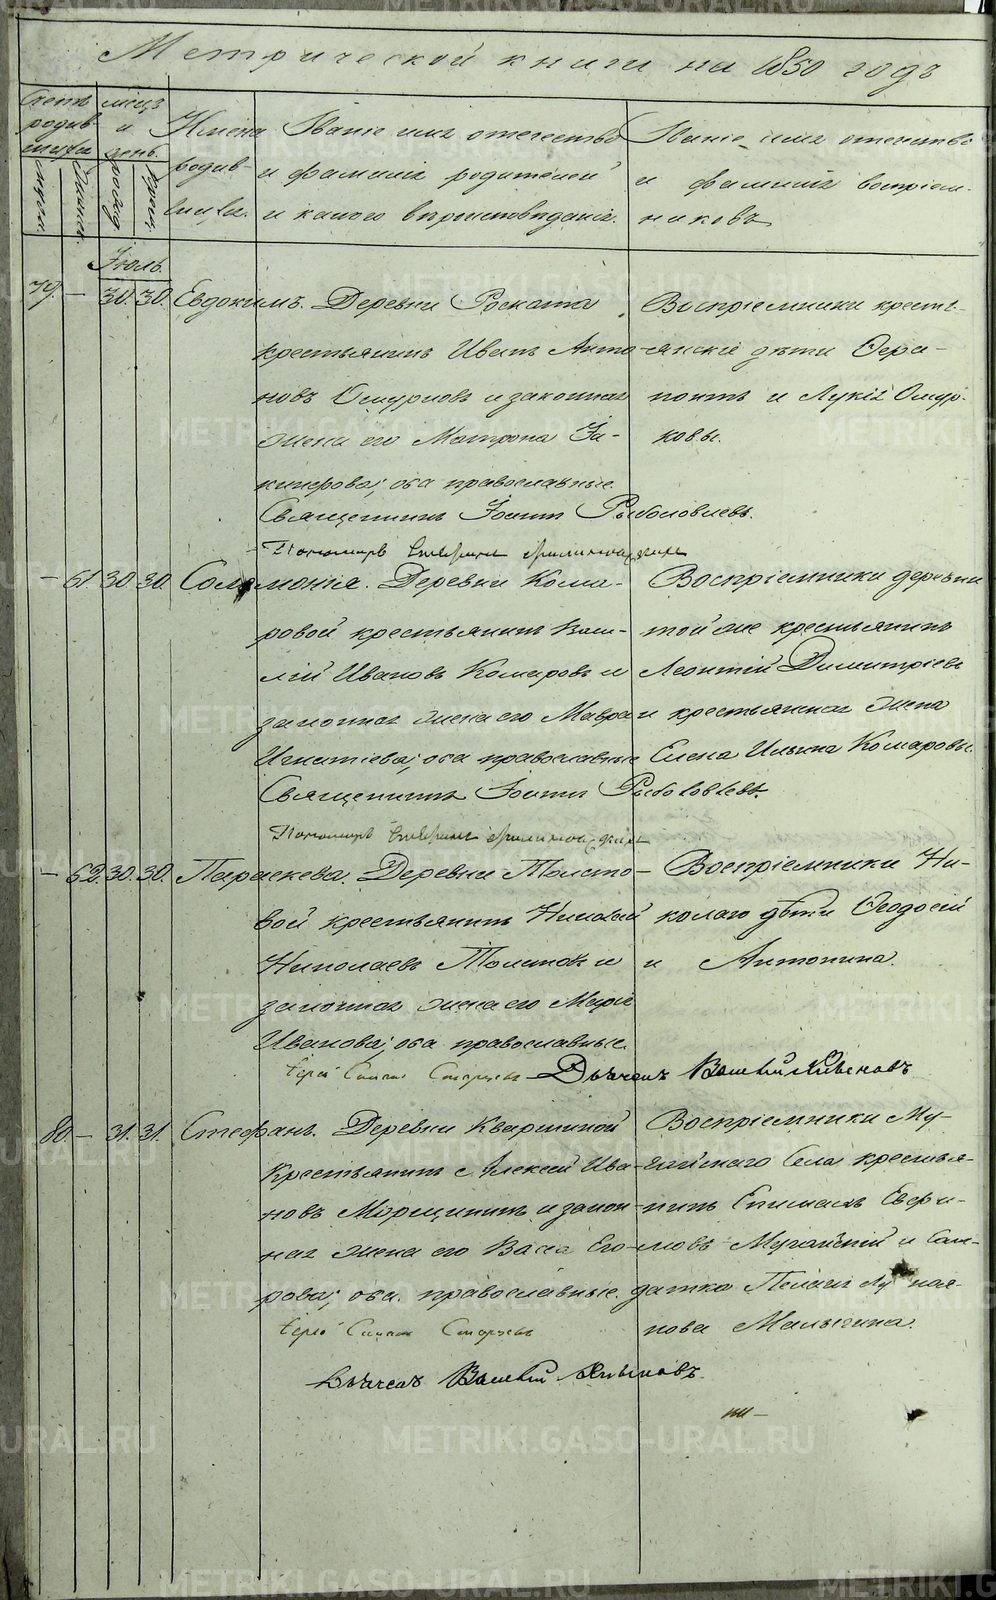 Метрической книги на 1850 годъ
Счетъ родив-шихся
мужеска
женска
Мѣсяцъ и день.
рожд
крещ
Имена родив-шихся.
Званіе имя отечество и фамилія родителей и какого вѣроисповѣданія.
Званіе, имя отечество и фамилія воспріем-никовъ
Іюль.
79. — 30. 30. Евдокимъ. Деревни Роската
крестьянинъ Иванъ Анто-
новъ Ошурковъ и законная
жена его Матрона
; оба православные.
Священникъ Іоаннъ Рыболовлевъ.
Пономарь
Воспріемники кресть-
янскіе дѣти Ѳера-
понтъ и Лукія Ошур-
ковы.
— 61 30 30 Соломонія. Деревни Кома-
ровой крестьянинъ Васи-
лій Ивановъ Комаровъ и
законная жена его Мавра
Игнатіева; оба православные
Священникъ Іоаннъ Рыболовлевъ.
Пономарь
Воспріемники деревни
той же крестьянинъ
Леонтій Димитріевъ
и крестьянская жена
Елена Ильина Комаровы.
— 62. 30. 30. Параскева. Деревни Толсто-
вой крестьянинъ Николай
Николаевъ Толстовъ и
законная жена его Марія
Иванова; оба православные.
Іерей Дьячекъ Василій
Воспріемники Ни-
колаго дѣти Ѳеодосій
и Антонина.
80 — 31. 31. Стефанъ. Деревни Кваршиной
Крестьянинъ Алексѣй Ива-
новъ Морщининъ и закон-
ная жена его Васса Его-
рова; оба православные.
Іерей
Дьячекъ Василій
Воспріемники Му-
гайскаго Села крестья-
нинъ Епимахъ
Мугайскій и Сол-
датка Пелагія
Малыгина.